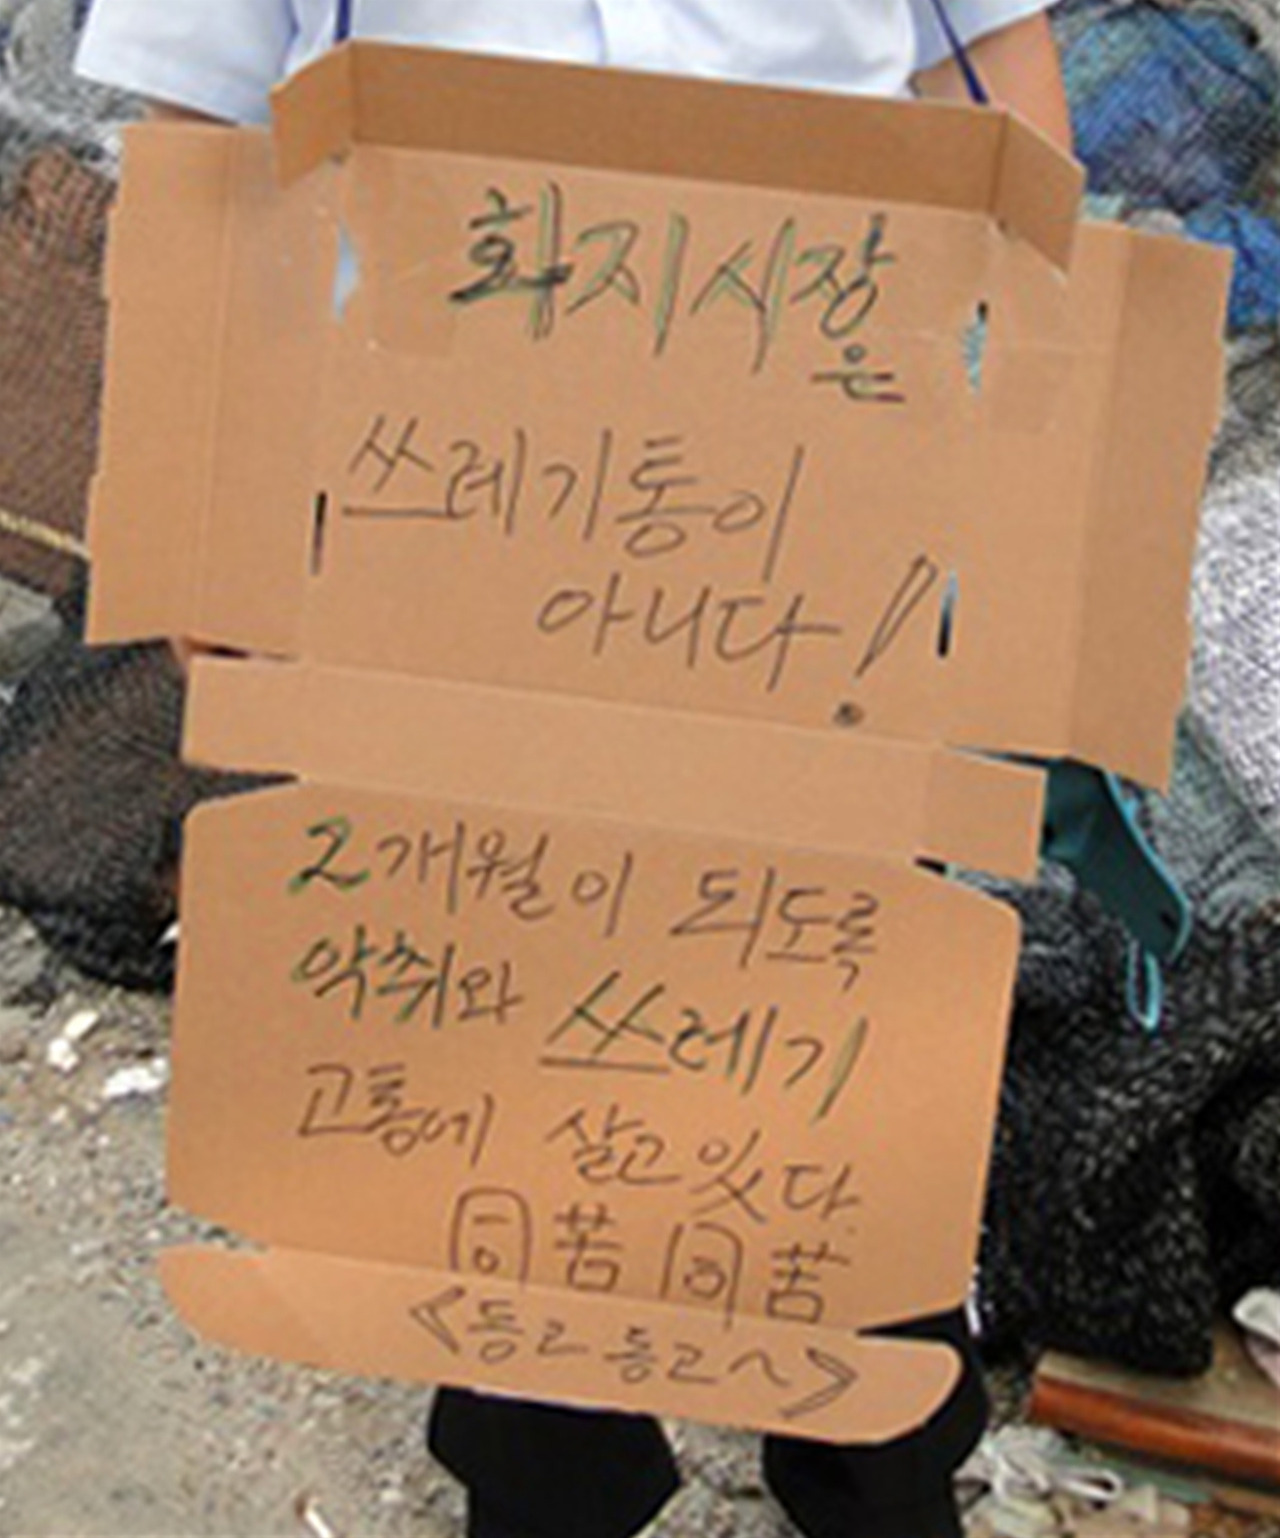 화지시장
은
쓰레기통이
아니다!
2개월이 되도록
악취와 쓰레기
고통에 살고있다.
同苦同苦
<동고동고~>